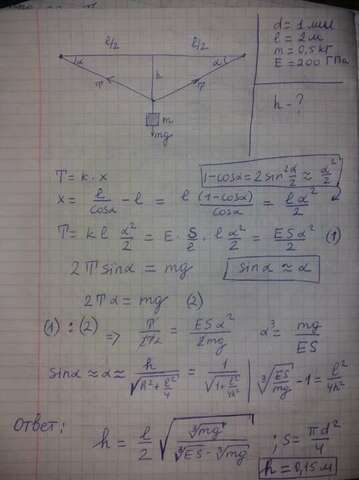 l/2 l/2
α α
T h T
m
mg
d = 1 мм
l = 2 м
m = 0,5 кг
E = 200 ГПа
h - ?
T = k · x
1-cosα = 2sin²α/2 ≈ α²/2
x = l/cosα - l = l(1-cosα)/cosα = lα²/2
T = kl α²/2 = E · S/l · lα²/2 = ESα²/2 (1)
2T sinα = mg
sinα ≈ α
2Tα = mg (2)
(1) : (2) ⇒ T/2Tα = ESα²/2mg α³ = mg/ES
sinα ≈ α ≈ h/√(h²+l²/4) = 1/√(1+l²/4h²) ∛(ES/mg) - 1 = l²/4h²
Ответ:
h = l/2 √(∛mg/(∛ES - ∛mg)) ; S = πd²/4
h = 0,15 м